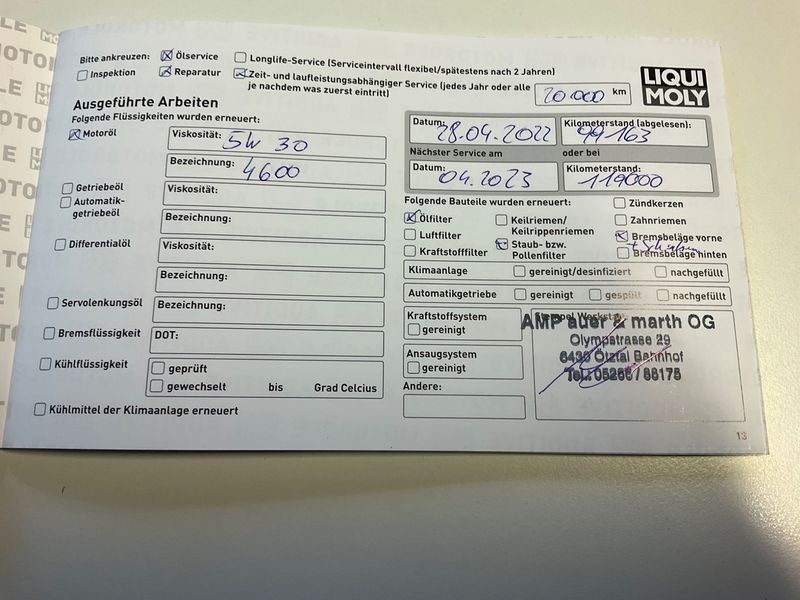 Bitte ankreuzen: Ölservice Longlife-Service (Serviceintervall flexibel/spätestens nach 2 Jahren)
Inspektion Reparatur Zeit- und laufleistungsabhängiger Service (jedes Jahr oder alle 20.000 km
je nachdem was zuerst eintritt)
LIQUI
MOLY
Ausgeführte Arbeiten
Folgende Flüssigkeiten wurden erneuert:
Motoröl Viskosität: 5W 30
Bezeichnung: 4600
Getriebeöl Viskosität:
Automatik-
getriebeöl Bezeichnung:
Differentialöl Viskosität:
Bezeichnung:
Servolenkungsöl Bezeichnung:
Bremsflüssigkeit DOT:
Kühlflüssigkeit geprüft
gewechselt bis Grad Celcius
Kühlmittel der Klimaanlage erneuert
Datum: 28.04.2022 Kilometerstand (abgelesen): 99163
Nächster Service am oder bei
Datum: 04.2023 Kilometerstand: 119000
Folgende Bauteile wurden erneuert: Zündkerzen
Ölfilter Keilriemen/ Zahnriemen
Keilrippenriemen
Luftfilter Staub- bzw. Bremsbeläge vorne
Pollenfilter + Scheiben
Kraftstofffilter Bremsbeläge hinten
Klimaanlage gereinigt/desinfiziert nachgefüllt
Automatikgetriebe gereinigt gespült nachgefüllt
Kraftstoffsystem
gereinigt
Ansaugsystem
gereinigt
Andere:
Stempel Werkstatt
AMP auer & marth OG
Olympstrasse 29
6430 Ötztal Bahnhof
13